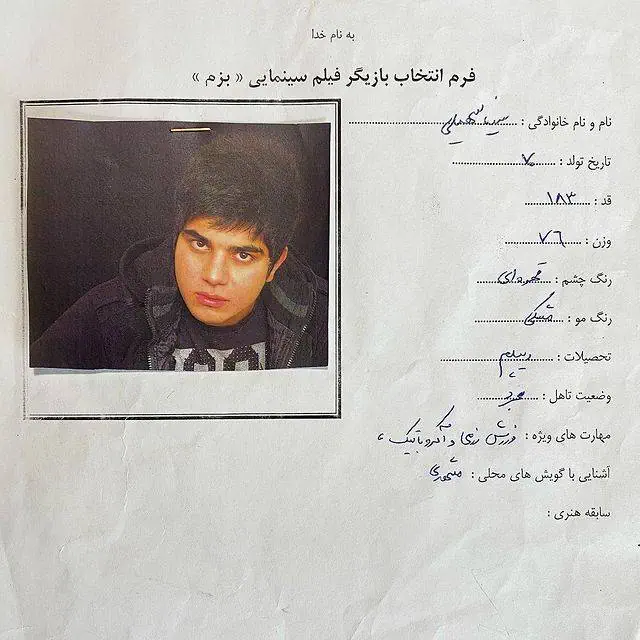 به نام خدا
فرم انتخاب بازیگر فیلم سینمایی « بزم »
نام و نام خانوادگی :
تاریخ تولد : ۷۰
قد : ۱۸۳
وزن : ۷۶
رنگ چشم : قهوه‌ای
رنگ مو : مشکی
تحصیلات : دیپلم
وضعیت تاهل : مجرد
مهارت های ویژه : ورزش رزمی و آکروباتیک ،
آشنایی با گویش های محلی : مشهدی
سابقه هنری :